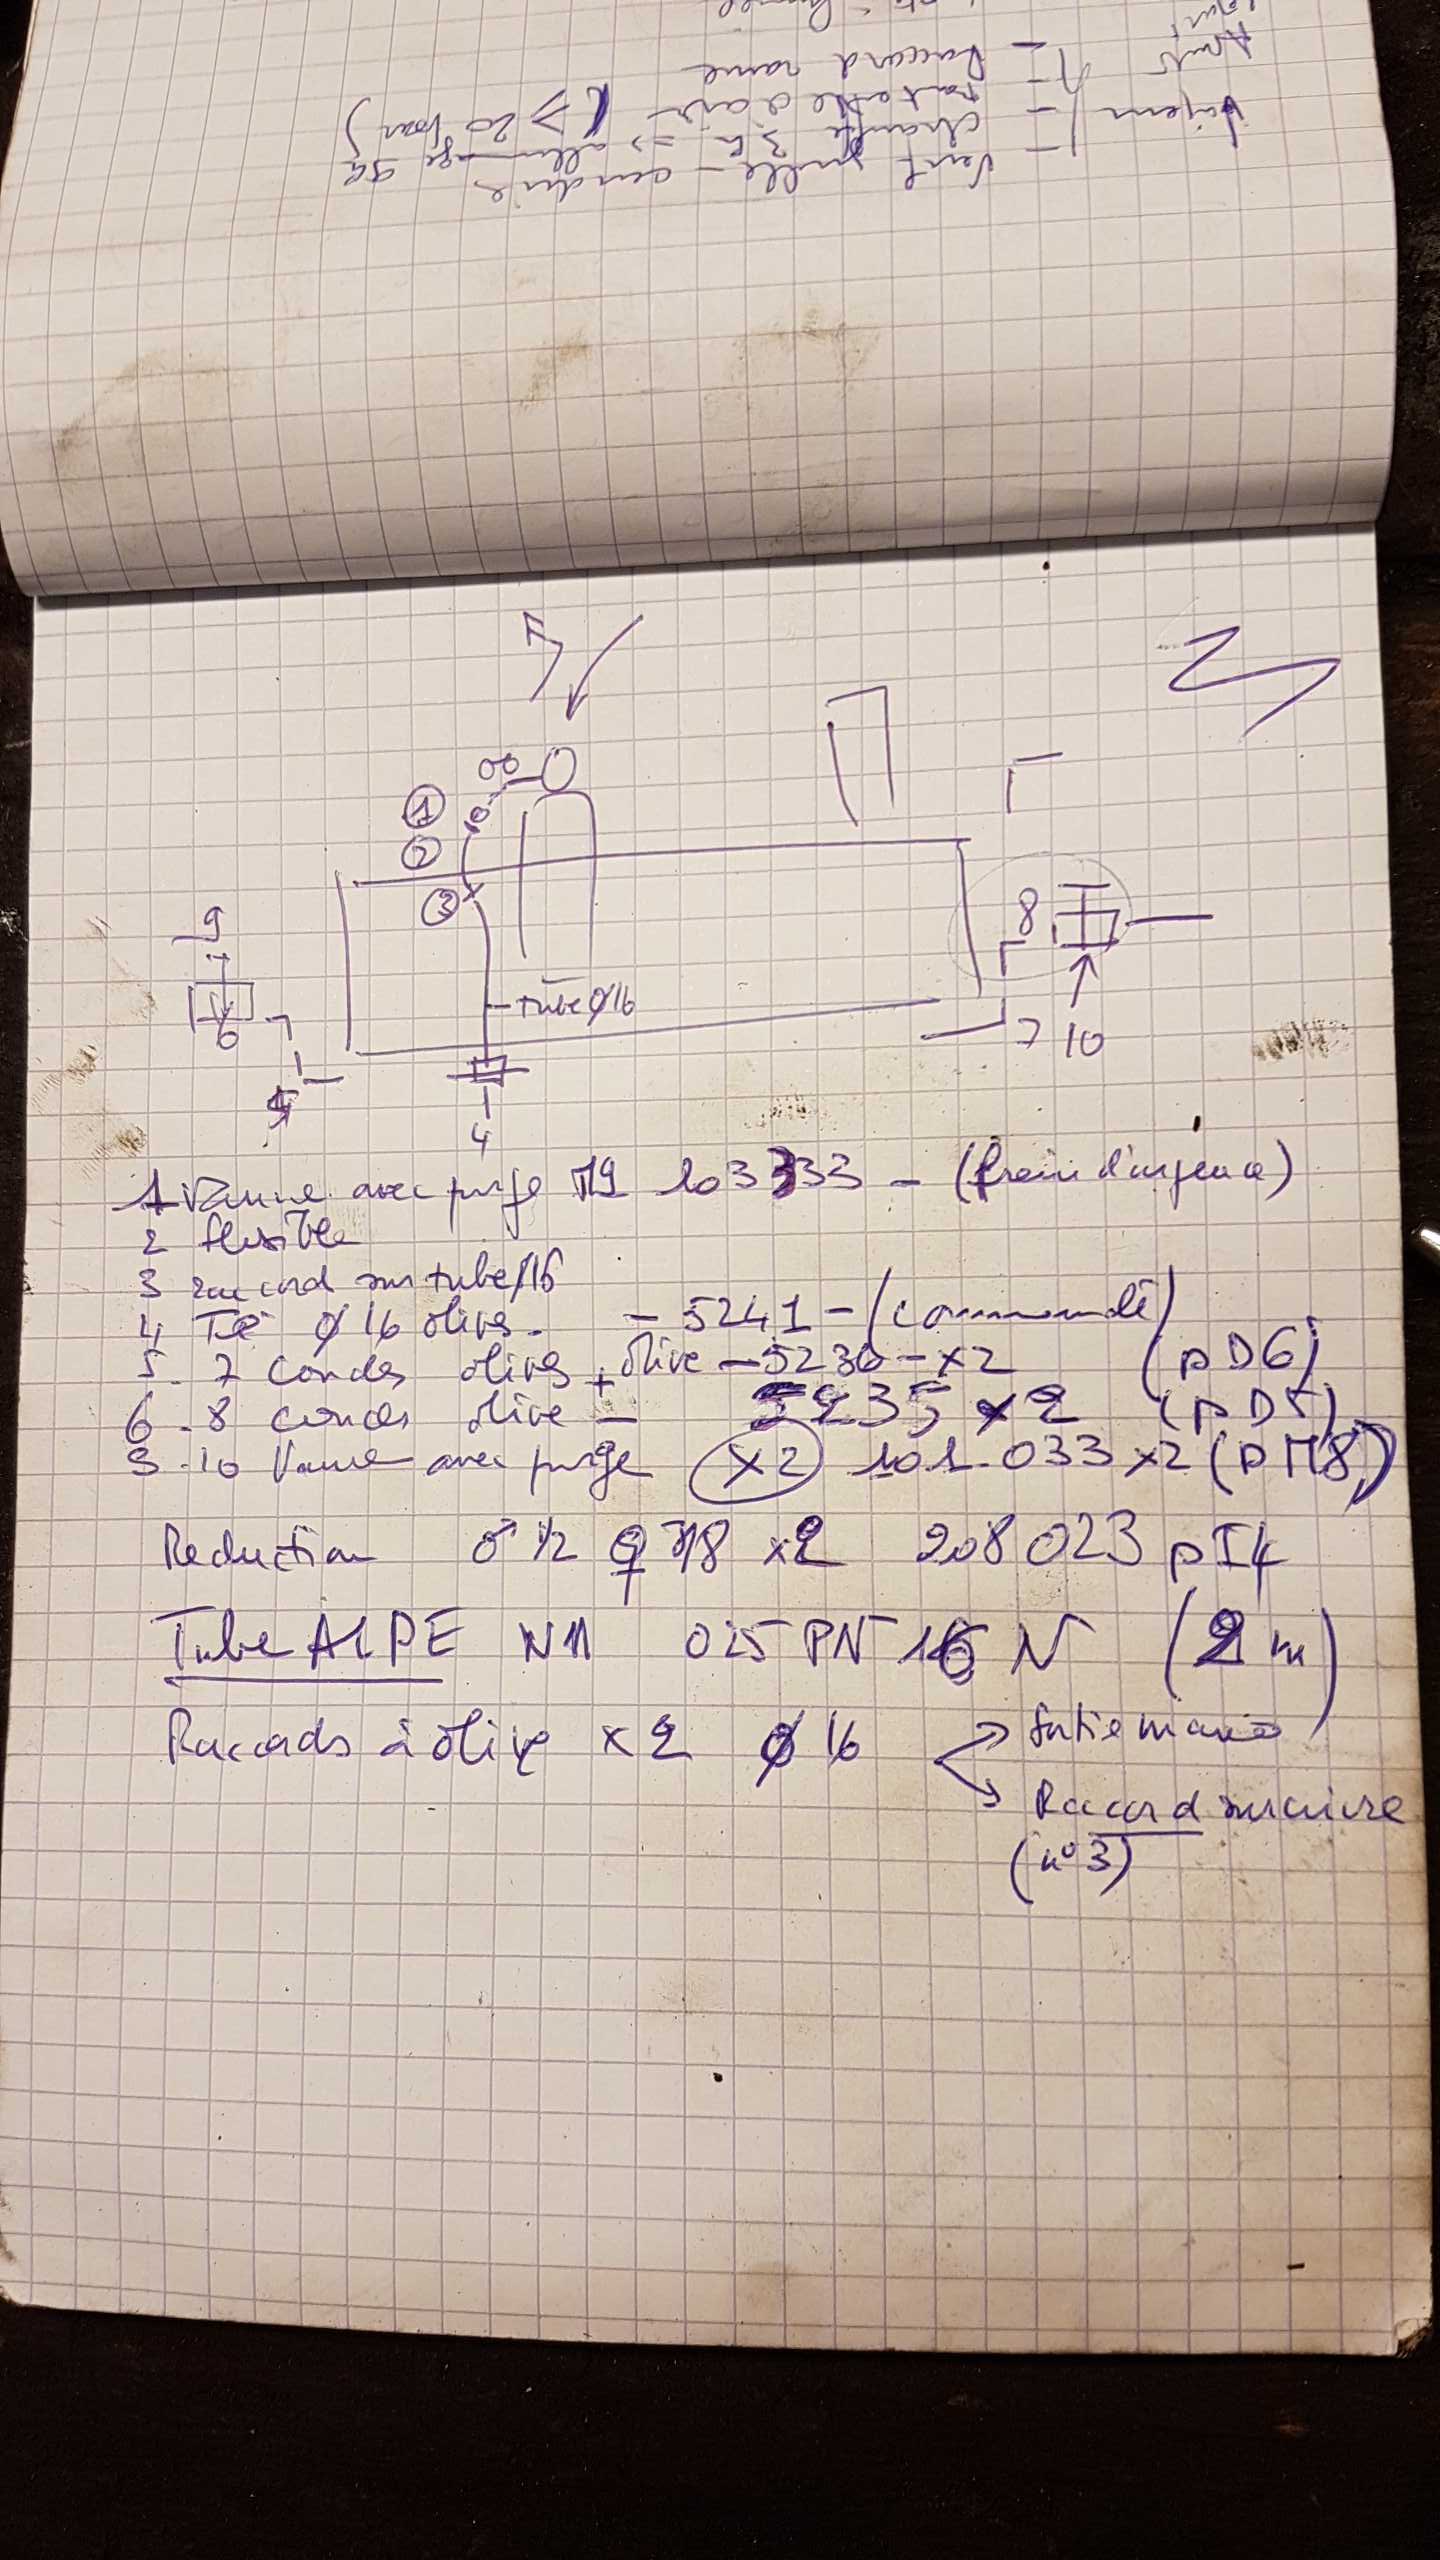 Raccord rame
9
1
2
3
8
6
tube ø16
7
10
5
4
1 Vanne avec purge M9 103333 - (frein d'urgence)
2 flexible
3 raccord sur tube ø16
4 Té ø 16 olive - - 5241 - (commandé)
5 - 7 coudes olives + olive - 5236 - x2 (pD6)
6 - 8 coudes olive - 5235 x2 (pD5)
9 - 10 Vanne avec purge x2 101.033 x2 (pM8)
Reduction ♂ 1/2 ♀ 3/8 x2 208023 pI4
Tube ALPE N11 025 PN 16 N (2 m)
Raccords à olive x2 ø 16
Raccord sur cuivre
(n° 3)